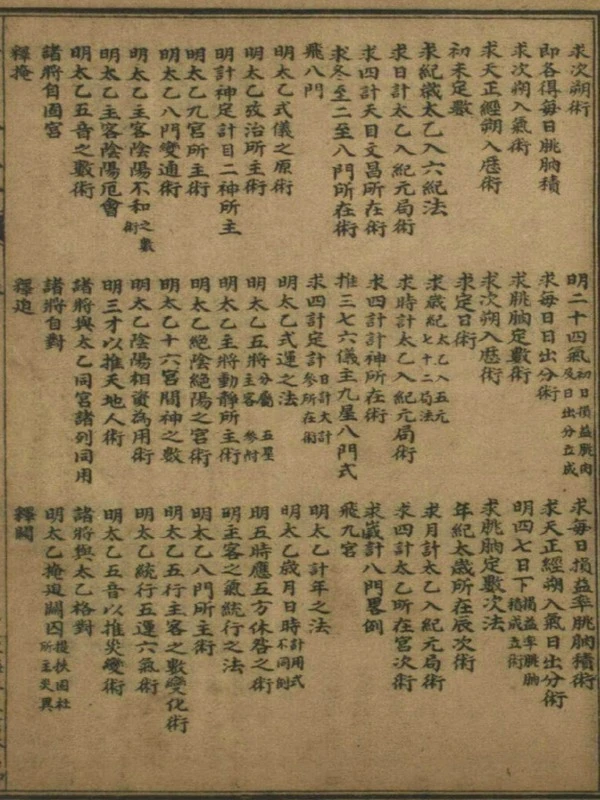 求次朔術
明二十四氣初日損益朓朒及日出分立成
求每日損益率朓朒積術
即各得每日朓朒積
求每日日出分術
求天正經朔入氣日出分術
求次朔入氣術
求朓朒定數術
明四七日下損益率朓朒積成立術
求天正經朔入厯術
求次朔入厯術
求朓朒定數次法
初末定數
求定日術
年紀太歲所在辰次術
求紀歲太乙入六紀法
求歲紀太乙入五元七十二局法
求月計太乙入紀元局術
求日計太乙入紀元局術
求時計太乙入紀元局術
求四計太乙所在宮次術
求四計天目文昌所在術
求四計計神所在術
求歲計八門畧例
求冬至二至八門所在術
推三七六儀主九星八門式
飛九宮
飛八門
求四計定計日計大計參所在術
明太乙計年之法
明太乙式儀之原術
明太乙式運之法
明太乙歲月日時計用式不同刻
明太乙攷治所主術
明太乙五將分屬主客五星參附
明五時應五方休咎之術
明計神定計目二神所主
明太乙主將動靜所主術
明主客之氣統行之法
明太乙九宮所主術
明太乙絕陰絕陽之宮術
明太乙八門所主術
明太乙八門變通術
明太乙十六宮間神之數
明太乙五行主客之數變化術
明太乙主客陰陽不和之數術
明太乙陰陽相資為用術
明太乙統行五運六氣術
明太乙主客陰陽厄會
明三才以推天地人術
明太乙五音以推災變術
明太乙五音之數術
諸將與太乙同宮諸列同用
諸將與太乙格對
諸將自囚宮
諸將自對
明太乙掩迫關囚提挾囚杜所主災異
釋掩
釋迫
釋關